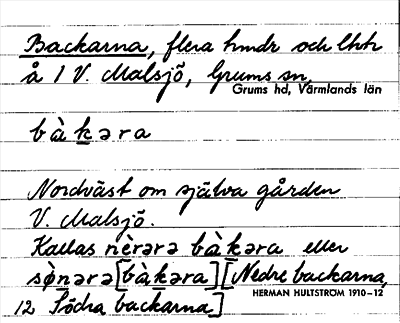 Backarna, flera hmdr och lhtr
å 1 V. Malsjö, Grums sn,
Grums hd, Värmlands län
bàkəra
Nordväst om själva gården
V. Malsjö.
Kallas nèrərə bàkəra eller
sø̀nərə [bàkəra] [Nedre backarna,
HERMAN HULTSTRÖM 1910–12
12 Södra backarna]